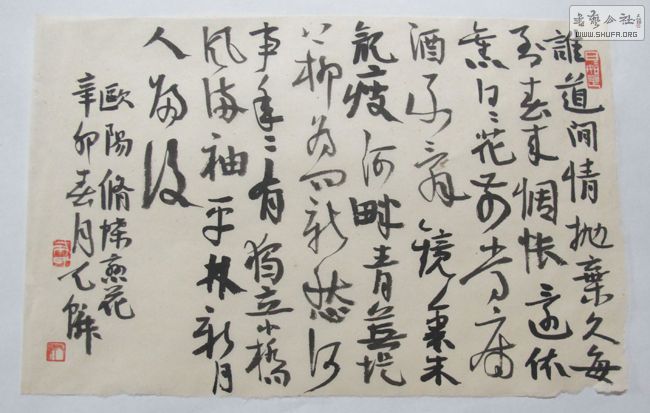 誰道閒情拋棄久每
到春来惆悵還依
舊日〻花前常病
酒不辭鏡裏朱
顏瘦河畔青蕪堤
上柳為問新愁何
事年〻有獨立小橋
風滿袖平林新月
人歸後
歐陽脩蝶戀花
辛卯春月
书艺公社
WWW.SHUFA.ORG